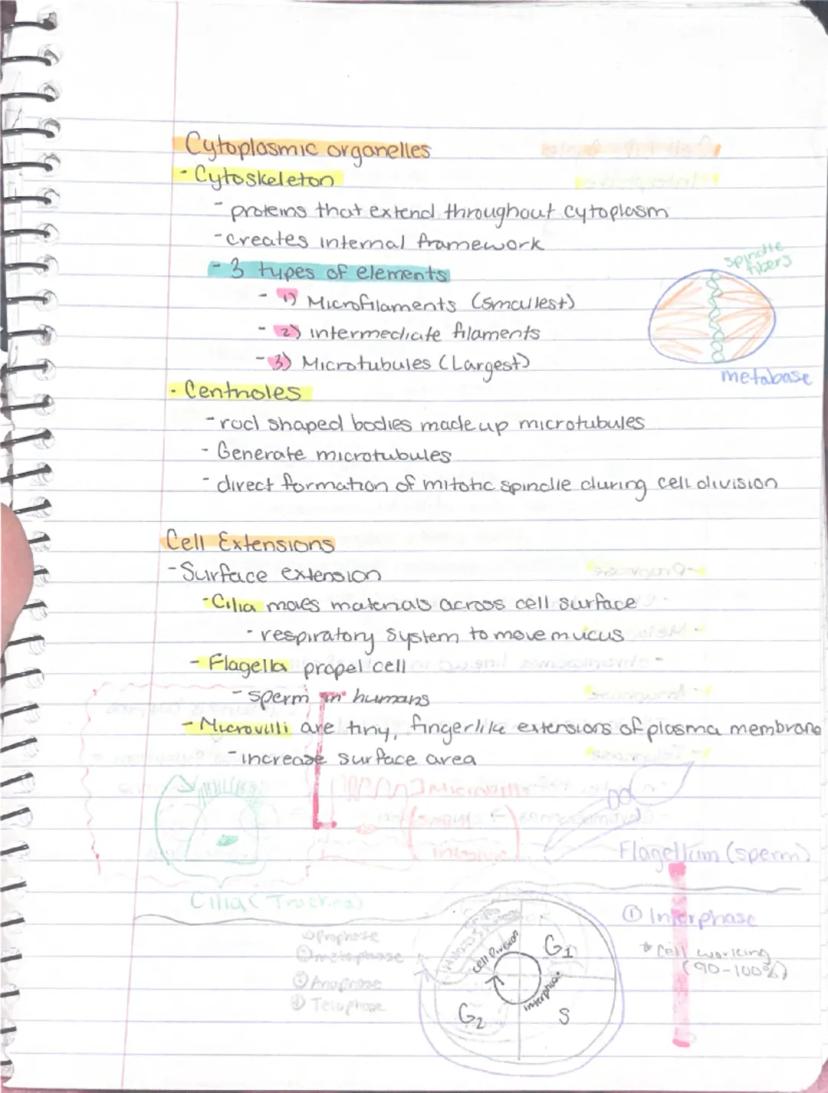 Cytoplasmic organelles
- Cytoskeleton
- proteins that extend throughout cytoplasm
- creates internal framework
- 3 types of elements
- 1) Microfilaments (smallest)
- 2) intermediate filaments
- 3) Microtubules (Largest)
spindle
fibers
metabase
- Centrioles
- rod shaped bodies made up microtubules
- Generate microtubules
- direct formation of mitotic spindle during cell division
Cell Extensions
- Surface extension
- Cilia moves materials across cell surface
- respiratory system to move mucus
- Flagella propel cell
- sperm in humans
- Microvilli are tiny, fingerlike extensions of plasma membrane
- increase surface area
Microvilli
Flagellum (sperm)
Cilia (Trachea)
① Prophase
② metaphase
③ Anaphase
④ Telophase
cell Division
G1
Interphase
G2
S
① Interphase
* Cell working
(90-100%)